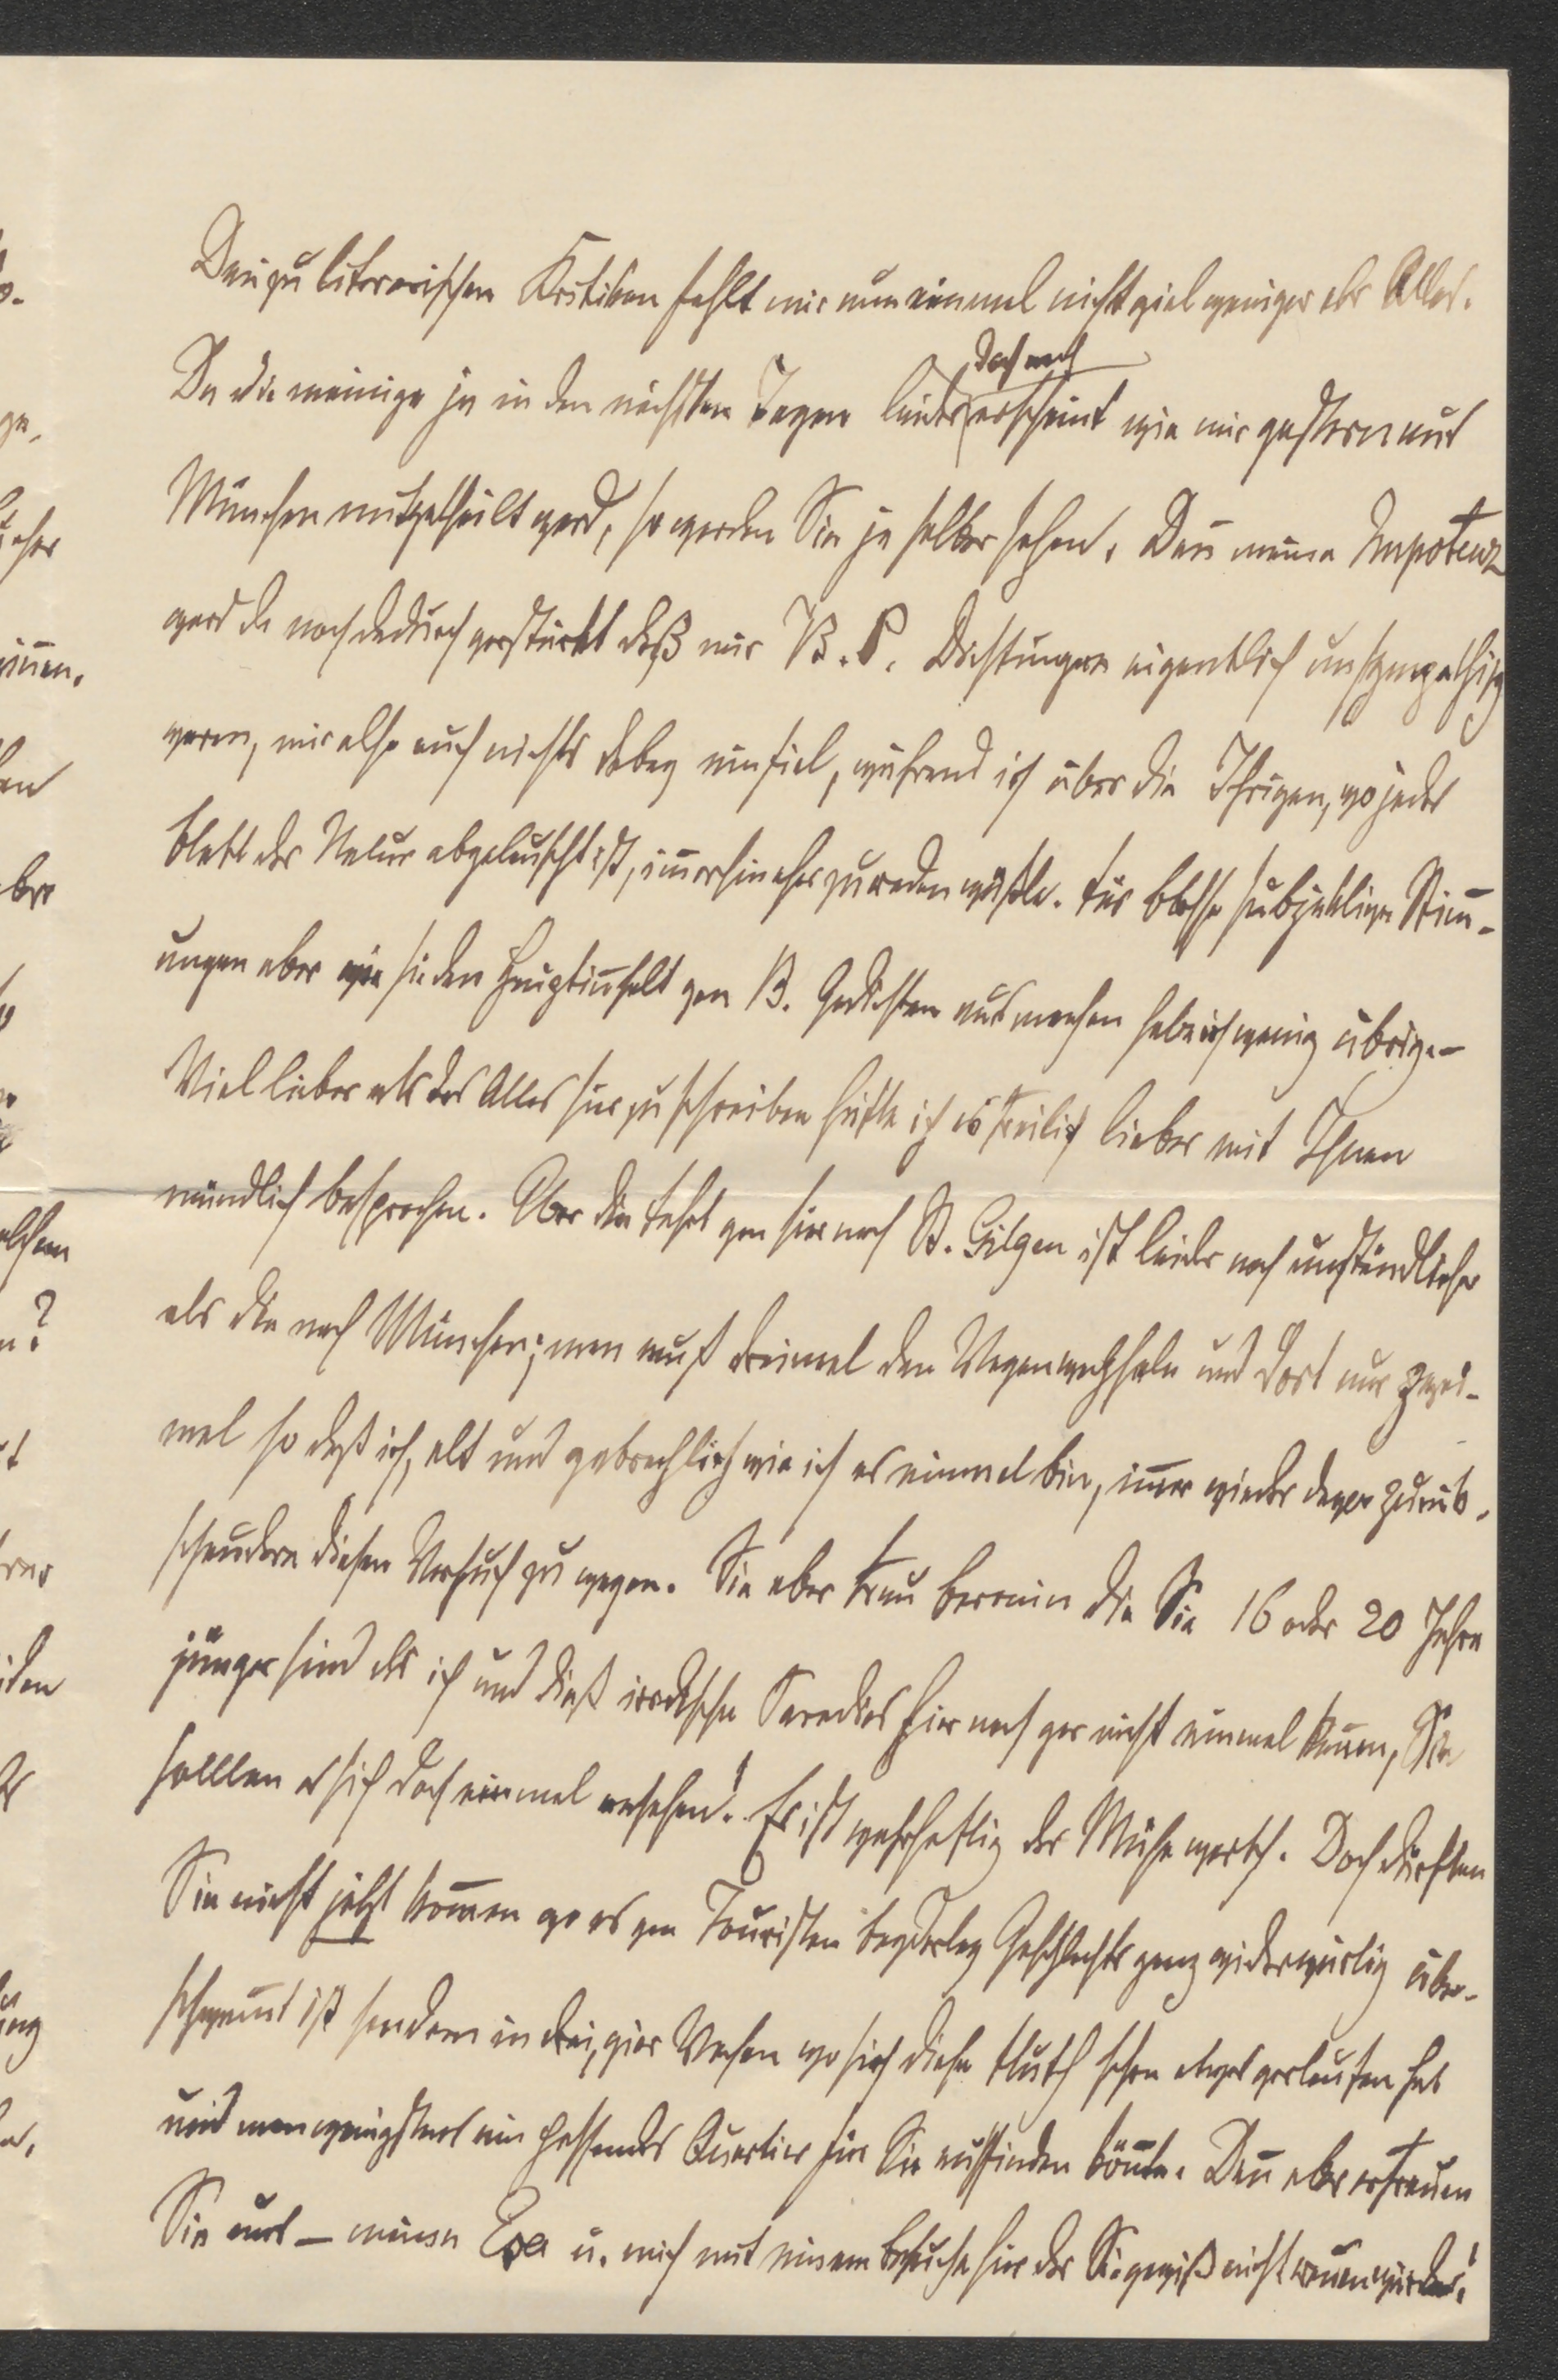 Den̄ zu literarischen Kritiken fehlt mir nun einmal nicht viel weniger als Alles.
Da die meinige ja in den nächsten Tagen leider doch noch erscheint wie mir gestern aus
München mitgetheilt ward, so werden Sie ja selber sehen. Den̄ meine Impotenz
ward da noch dadurch verstärkt daß mir B. P. Dichtungen eigentlich unsympathisch
waren, mir also auch nichts dabey einfiel, während ich über die Ihrigen, wo jedes
Blatt der Natur abgelauscht ist, im̄erhin eher zu reden wüßte. Für blosse subjektive Stim̄-
ungen aber wie sie den Hauptin̄halt von B. Gedichten ausmachen habe ich wenig übrig. –
Viel lieber als das Alles hier zu schreiben hätte ich es freilich lieber mit Ihnen
mündlich besprochen. Aber die Fahrt von hier nach St. Gilgen ist leider noch umständlicher
als die nach München; man muß dreimal den Wagen wechseln und dort nur zwei-
mal so daß ich, alt und gebrechlich wie ich es einmal bin, im̄er wieder davor zurück-
schaudere diesen Versuch zu wagen. Sie aber Frau Baronin die Sie 16 oder 20 Jahre
jünger sind als ich und dieß irdische Paradies hier noch gar nicht einmal ken̄en, Sie
solllen es sich doch einmal ansehen! Es ist wahrhaftig der Mühe werth. Doch dürften
Sie nicht jetzt kom̄en wo es von Touristen beyderley Geschlechts ganz widerwärtig über-
schwem̄t ist sondern in drei, vier Wochen wo sich diese Fluth schon etwas verlaufen hat
und man wenigstens ein passendes Quartier für Sie auffinden kön̄te. Dan̄ aber erfreuen
Sie uns – meine Eva u. mich mit einem Besuche hier der Sie gewiß nicht reuen würde!